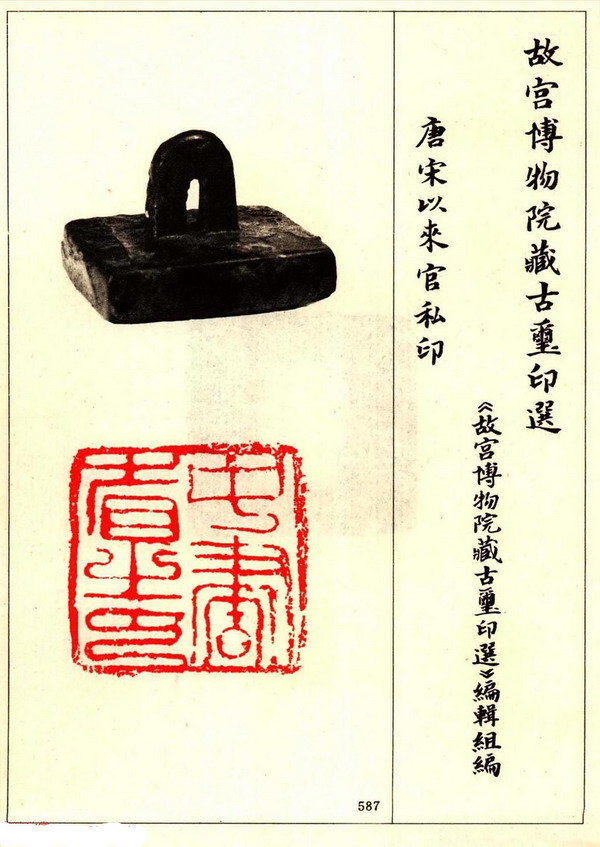 故宫博物院藏古璽印選
《故宫博物院藏古璽印選》編輯組編
唐宋以來官私印
中書
省之印
587